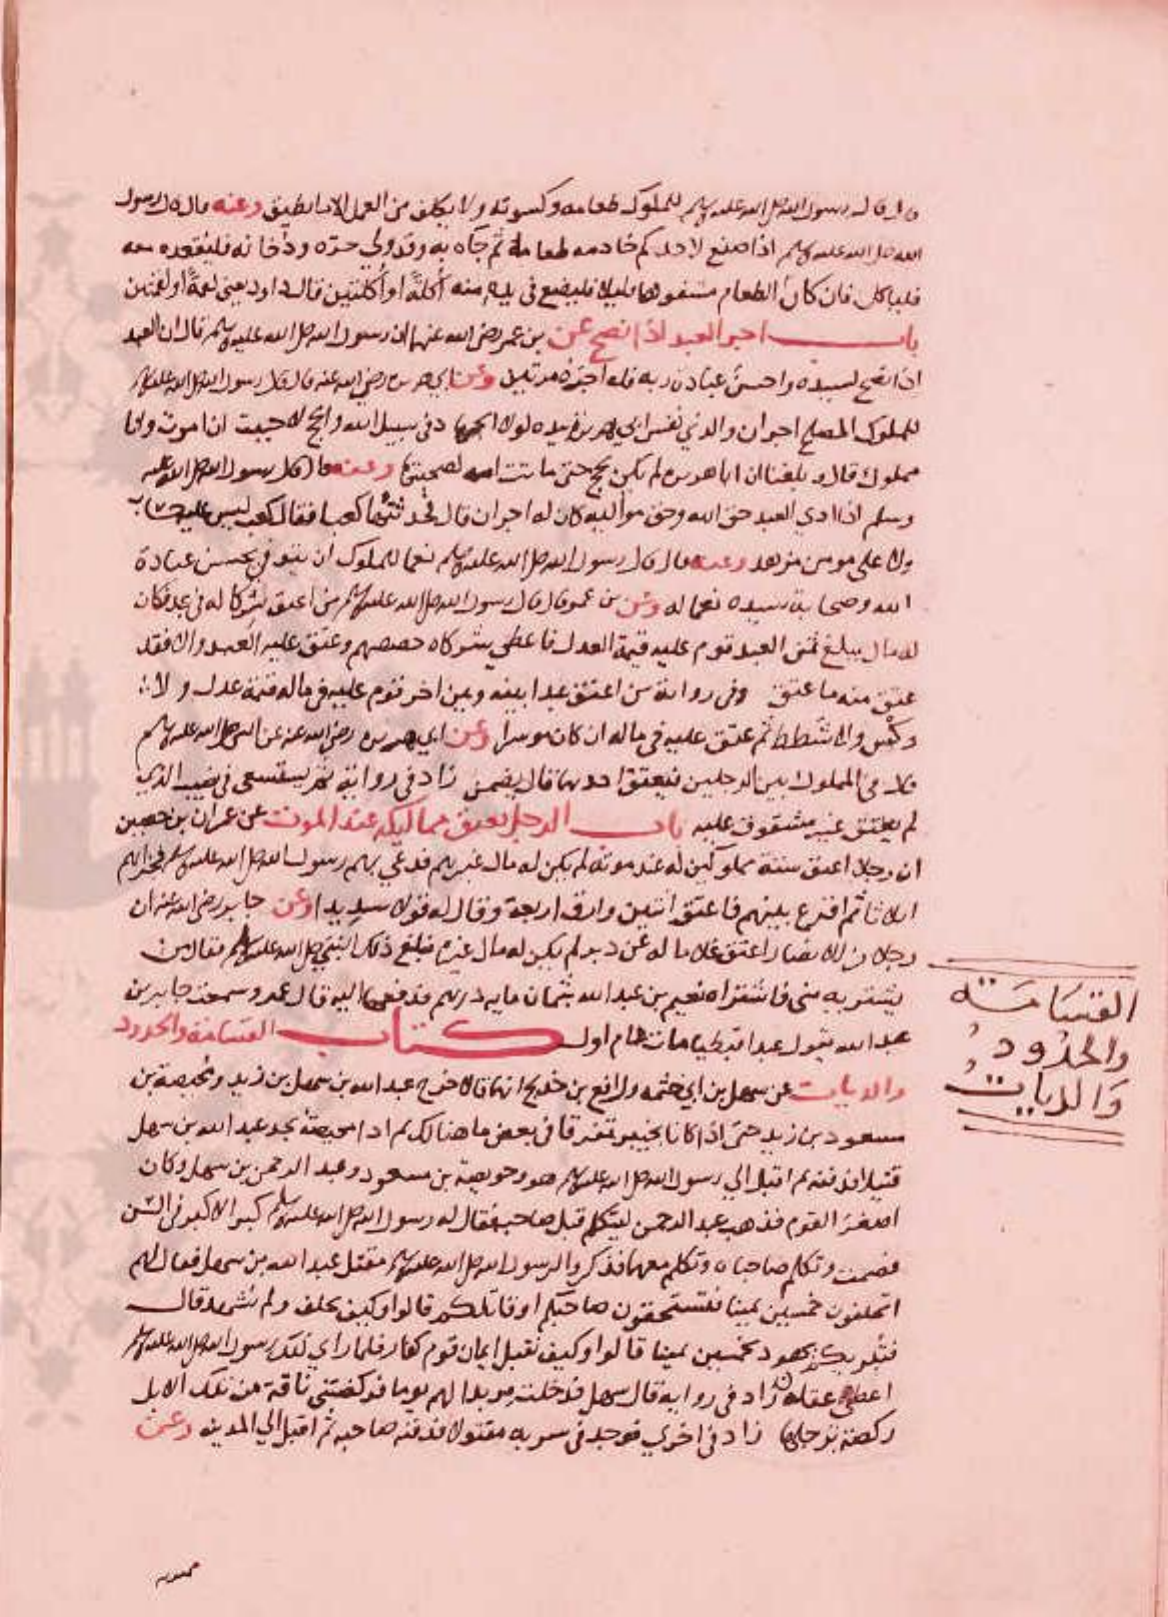 قال قال رسول الله صلى الله عليه وسلم للمملوك طعامه وكسوته ولا يكلف من العمل الا ما يطيق وعنه قال قال رسول
الله صلى الله عليه وسلم اذا صنع لاحدكم خادمه طعامه ثم جاه به وقد ولي حره ودخانه فليقعده معه
فلياكل فان كان الطعام مشفوها قليلا فليضع في يده منه أكلة او أكلتين قال داود يعني لقمة او لقمتين
باب اجر العبد اذا نصح عن بن عمر رضي الله عنهما ان رسول الله صلى الله عليه وسلم قال ان العبد
اذا نصح لسيده واحسن عبادة ربه فله اجره مرتين وعن ابي هريرة رضي الله عنه قال قال رسول الله صلى الله عليه وسلم
للمملوك المصلح اجران والذي نفس ابي هريرة بيده لولا الجهاد في سبيل الله والحج لاحببت ان اموت وانا
مملوك قال وبلغنا ان ابا هريرة لم يكن يحج حتى ماتت امه لصحبتها وعنه قال قال رسول الله صلى الله عليه
وسلم اذا ادي العبد حق الله وحق مواليه كان له اجران قال فحدثتهما كعبا فقال كعب ليس عليه حساب
ولا على مومن مزهد وعنه قال قال رسول الله صلى الله عليه وسلم نعما للمملوك ان يتوفي يحسن عبادة
الله وصحابة سيده نعما له وعن بن عمر قال قال رسول الله صلى الله عليه وسلم من اعتق شركا له في عبد فكان
له مال يبلغ ثمن العبد قوم عليه قيمة العدل فاعطي شركاه حصصهم وعتق عليه العبد والا فقد
عتق منه ما عتق وفي رواية من اعتق عبدا بينه وبين اخر قوم عليه في ماله قيمة عدل ولا
وكس ولا شطط ثم عتق عليه في ماله ان كان موسرا وعن ابي هريرة رضي الله عنه عن النبي صلى الله عليه وسلم
قال في المملوك بين الرجلين فيعتق احدهما قال يضمن زاد في رواية ثم يستسعى في نصيب الذي
لم يعتق غير مشقوق عليه باب الرجل يعتق مماليكه عند الموت عن عمران بن حصين
ان رجلا اعتق ستة مملوكين له عند موته لم يكن له مال غيرهم فدعي بهم رسول الله صلى الله عليه وسلم فجزاهم
اثلاثا ثم اقرع بينهم فاعتق اثنين وارق اربعة وقال له قولا شديدا وعن جابر رضي الله عنه ان
رجلا من الانصار اعتق غلاما له عن دبر لم يكن له مال غيره فبلغ ذلك النبي صلى الله عليه وسلم فقال من
يشتريه مني فاشتراه نعيم بن عبد الله بثمان مايه درهم فدفعها اليه قال عمرو سمعت جابر بن
عبد الله يقول عبدا قبطيا مات عام اول كتاب القسامة والحدود
والديات عن سهل بن ابي حثمه ورافع بن خديج انهما قالا خرج عبد الله بن سهل بن زيد ومحيصة بن
مسعود بن زيد حتى اذا كانا بخيبر تفرقا في بعض ما هنالك ثم اذا محيصة يجد عبد الله بن سهل
قتيلا فدفنه ثم اقبل الي رسول الله صلى الله عليه وسلم هو وحويصة بن مسعود وعبد الرحمن بن سهل وكان
اصغر القوم فذهب عبد الرحمن ليتكلم قبل صاحبه فقال له رسول الله صلى الله عليه وسلم كبر الاكبر في السن
فصمت وتكلم صاحباه وتكلم معهما فذكروا لرسول الله صلى الله عليه وسلم مقتل عبد الله بن سهل فقال لهم
اتحلفون خمسين يمينا فتستحقون صاحبكم او قاتلكم قالوا وكيف نحلف ولم نشهد قال
فتبريكم يهود بخمسين يمينا قالوا وكيف نقبل ايمان قوم كفار فلما راي ذلك رسول الله صلى الله عليه وسلم
اعطي عقله زاد في رواية قال سهل فدخلت مربدا لهم يوما فركضتني ناقة من تلك الابل
ركضة برجلها زاد في اخري فوجد في سربه مقتولا فدفنه صاحبه ثم اقبل الي المدينه وعن
القسامة
والحدود
والديات